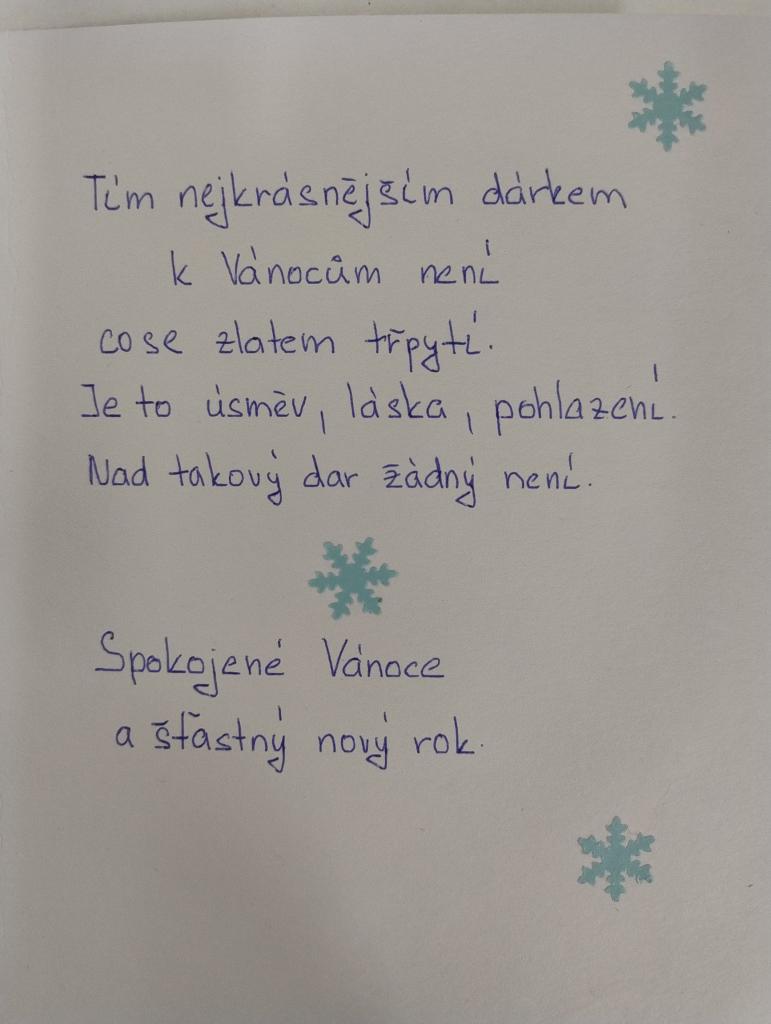 Tím nejkrásnějším dárkem
k Vánocům není
co se zlatem třpytí.
Je to úsměv, láska, pohlazení.
Nad takový dar žádný není.
Spokojené Vánoce
a šťastný nový rok.